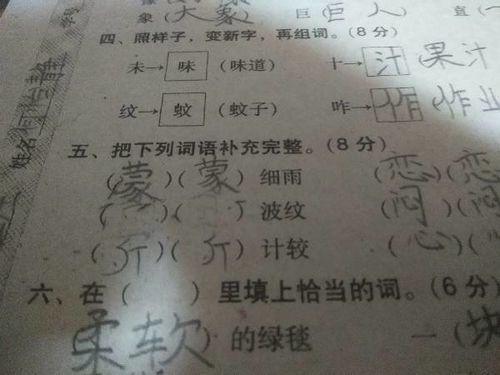 象（大象） 巨（巨人） 直（
四、照样子，变新字，再组词。（8分）
未→味（味道） 十→汁（果汁
纹→蚊（蚊子） 咋→作（作业
五、把下列词语补充完整。（8分）
（蒙）（蒙）细雨 （恋）（恋
（ ）（ ）波纹 （闷）（闷
（斤）（斤）计较 （心）（
六、在（ ）里填上恰当的词。（6分）
（柔软）的绿毯 一（块
姓名